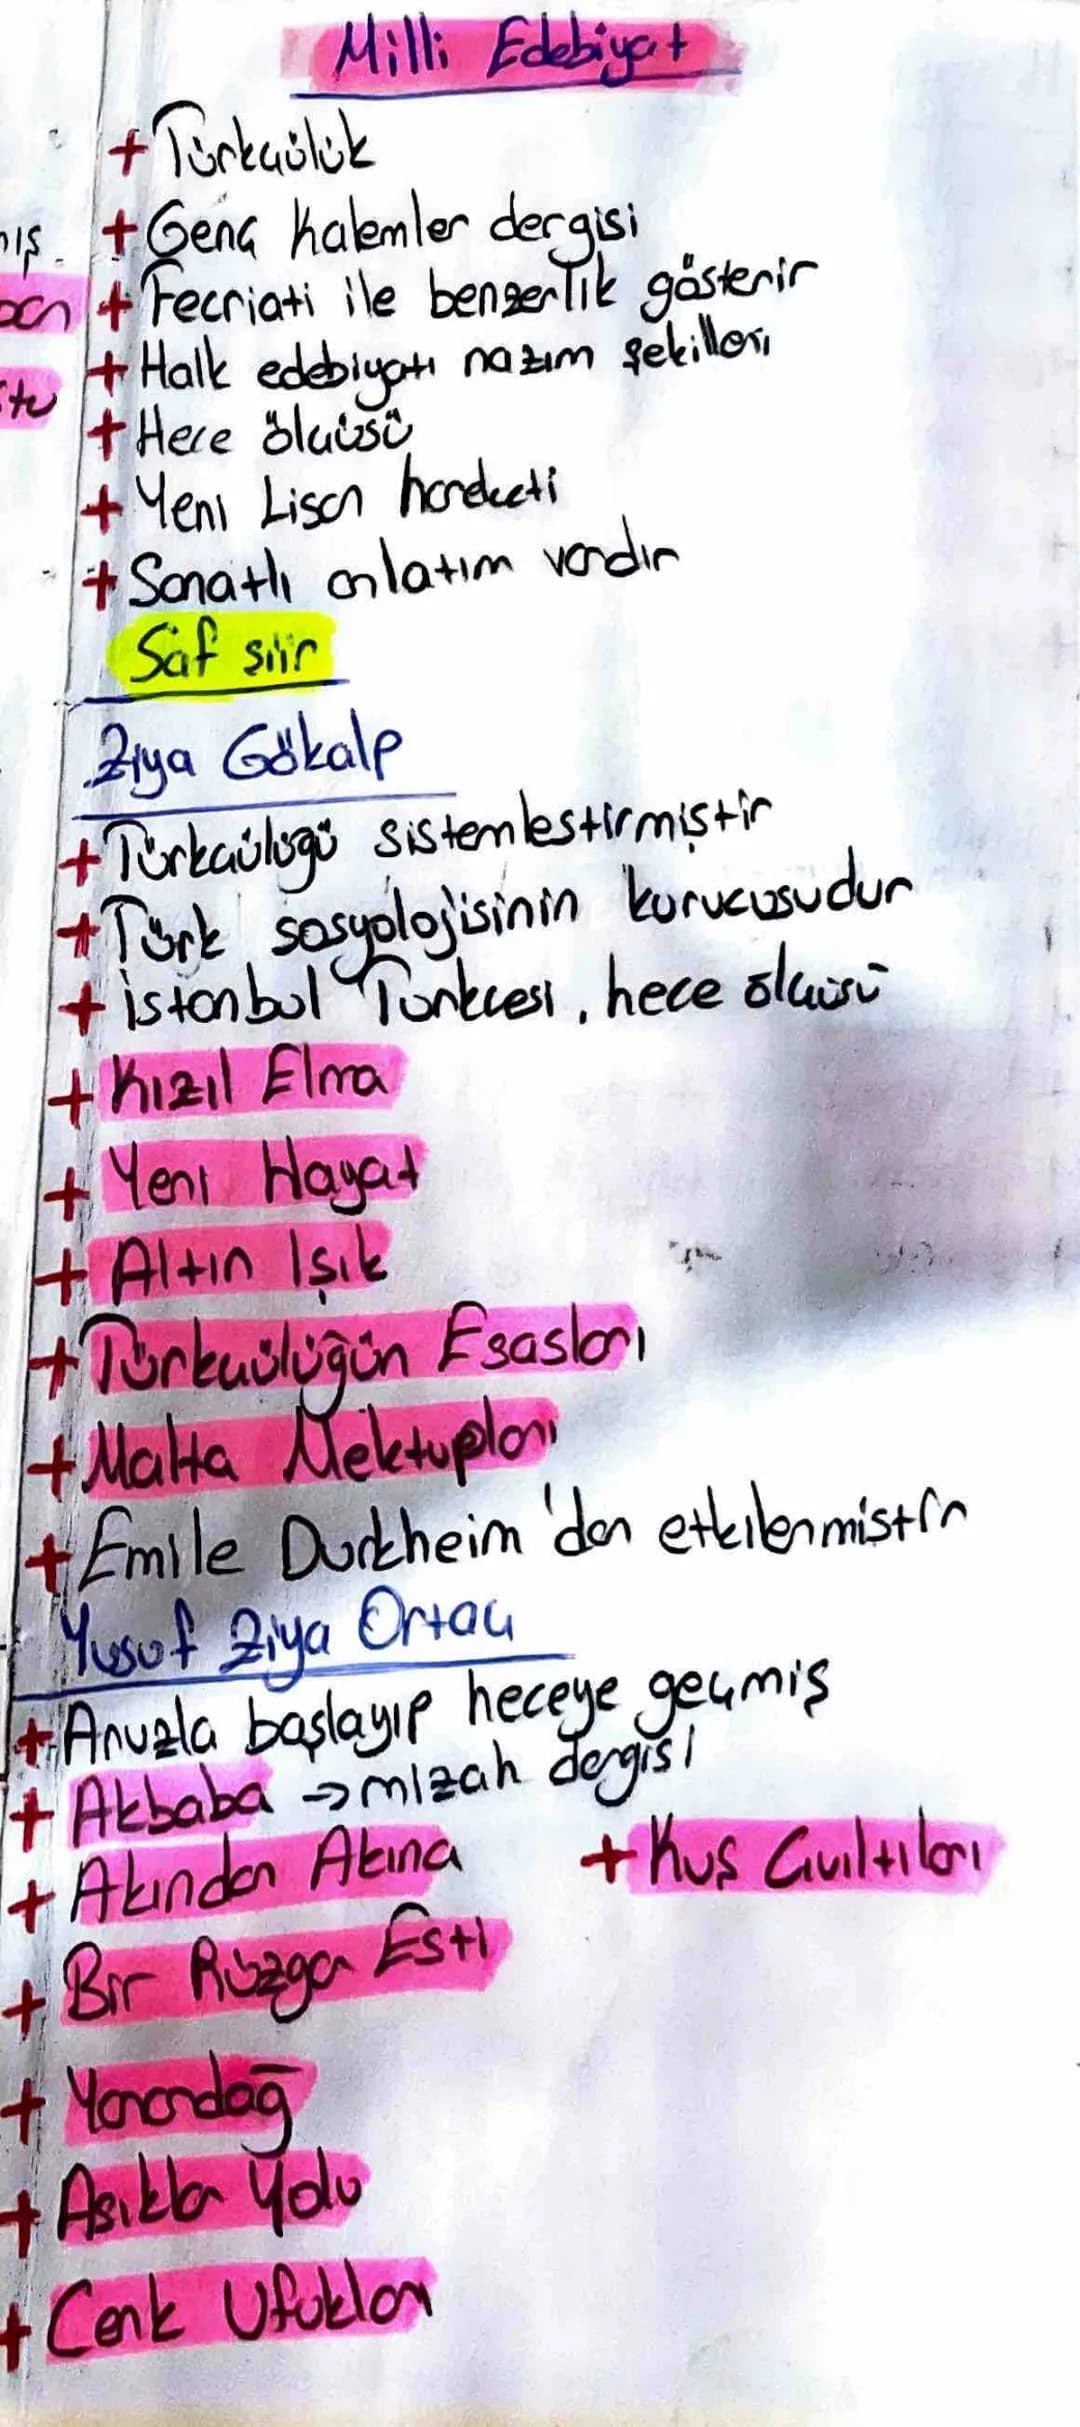 Milli Edebiyat
+ Türkçülük
+ Genç Kalemler dergisi
+ Fecriati ile benzerlik gösterir
+ Halk edebiyatı nazım şekilleri
+ Hece ölçüsü
+ Yeni Lisan hareketi
+ Sanatlı anlatım vardır
Saf şiir
Ziya Gökalp
+ Türkçülüğü sistemleştirmiştir
+ Türk sosyolojisinin kurucusudur
+ İstanbul Türkçesi, hece ölçüsü
+ Kızıl Elma
+ Yeni Hayat
+ Altın Işık
+ Türkçülüğün Esasları
+ Malta Mektupları
+ Emile Durkheim'den etkilenmiştir
Yusuf Ziya Ortaç
+ Aruzla başlayıp heceye geçmiş
+ Akbaba → mizah dergisi
+ Akından Akına + Kuş Cıvıltıları
+ Bir Rüzgar Esti
+ Yanardağ
+ Aşıklar Yolu
+ Cenk Ufukları